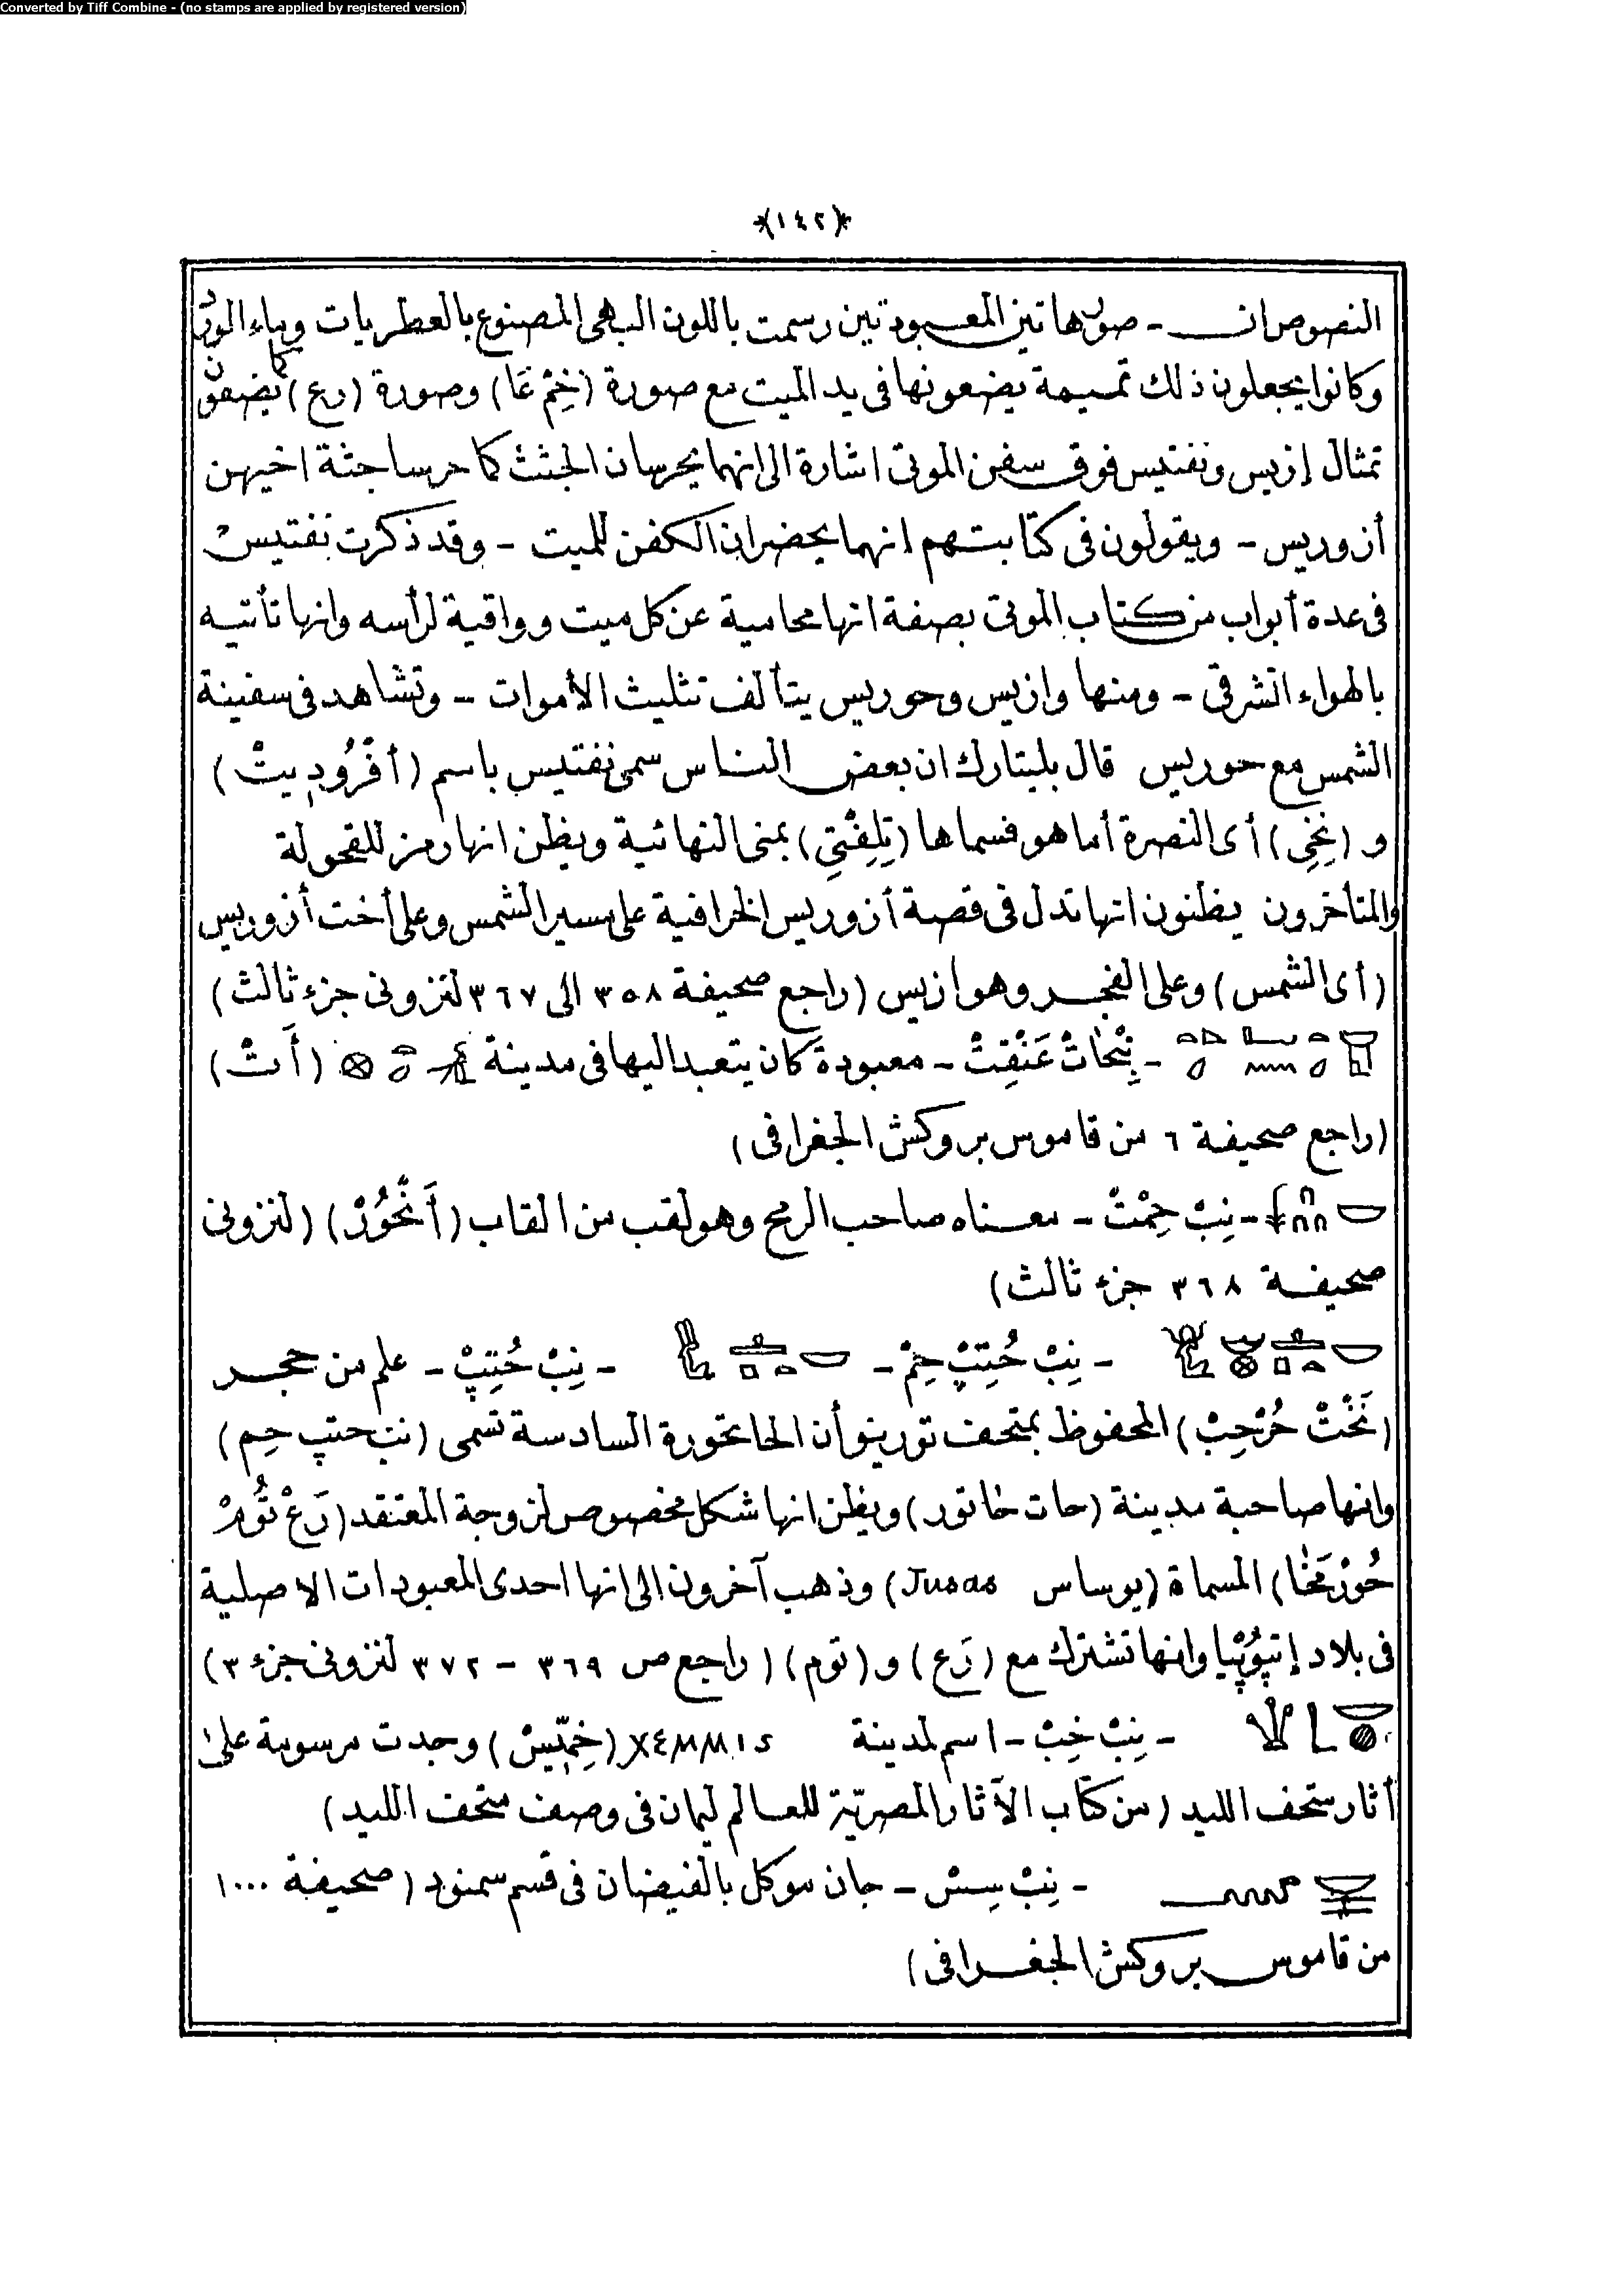 Converted by Tiff Combine - (no stamps are applied by registered version)
*(١٤٢)*
النصوص ان - صور هاتين المعبودتين رسمت باللون البهى المصنوع بالعطريات وبماء الورد
وكانوا يجعلون ذلك تميمة يضعونها فى يد الميت مع صورة (خِمْ عَا) وصورة (رع) كما يضعون
تمثال إزيس ونفتيس فوق سفن الموتى اشارة الى انهما يحرسان الجثث كما حرسا جثة اخيهن
أزوريس - ويقولون فى كتابتهم انهما يحضران الكفن للميت - وقد ذكرت نفتيس
فى عدة أبواب من كتاب الموتى بصفة انها محامية عن كل ميت وواقية لرأسه وانها تأتيه
بالهواء الشرقى - ومنها وازيس وحوريس يتألف تثليث الأموات - وتشاهد فى سفينة
الشمس مع حوريس قال بليتارك ان بعض الناس سمى نفتيس باسم (أفْرُودِيتْ)
و (نِخِى) أى النصرة أما هو فسماها (تِلِفْتِى) بمنى النهائية ويظن انها رمز للقحولة
والمتأخرون يظنون انها تدل فى قصة أزوريس الخرافية على مسير الشمس وعلى أخت أزوريس
(أى الشمس) وعلى الفجر وهو ازيس (راجع صحيفة ٣٥٨ الى ٣٦٧ لنزونى جزء ثالث)
- نِتْحَاتْ عَنْقِتْ - معبودة كان يتعبد اليها فى مدينة (أَتْ)
(راجع صحيفة ٦ من قاموس بروكش الجغرافى)
- نِبْ حِمْتْ - معناه صاحب الرمح وهو لقب من القاب (أَنْحُورْ) (لنزونى
صحيفة ٣٦٨ جزء ثالث)
- نِبْ حُتِپْ حِمْ - - نِبْ حُتِپْ - علم من حجر
(نَخْتْ حُرْحِبْ) المحفوظ بمتحف تورينو أن الحاتحورة السادسة تسمى (نب حتپ حِم)
وانها صاحبة مدينة (حات خاتور) ويظن انها شكل مخصوص لزوجة المعتقد (رَعْ تُومْ
حُورْمَخَا) المسماة (يوساس Jusas) وذهب آخرون الى انها احدى المعبودات الاصلية
فى بلاد إتيُوپْيا وانها تشترك مع (رَع) و (توم) (راجع ص ٣٦٩ - ٣٧٢ لنزونى جزء ٣)
- نِبْ خِبْ - اسم لمدينة (خِمِّيسْ) وجدت مرسومة على
أثار متحف الليد (من كتاب الآثار المصريّة للعالم ليمان فى وصف متحف الليد)
- نِبْ سِسْ - جان موكل بالفيضان فى قسم سمنود (صحيفة ١٠٠٠
من قاموس بروكش الجغرافى)